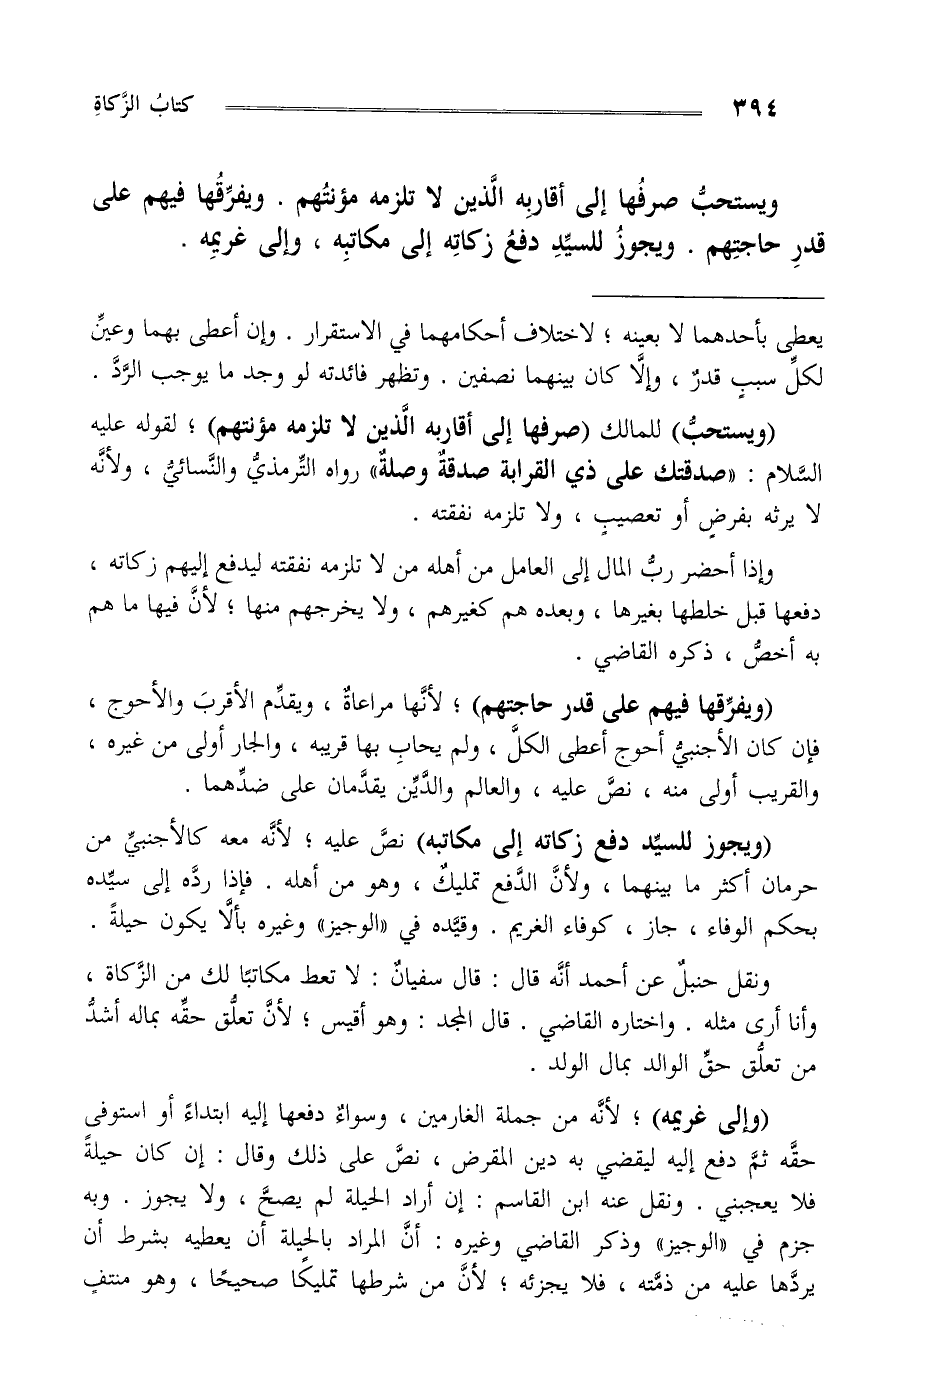 ٣٩٤ كتابُ الزَّكاةِ
ويستحبُّ صرفُها إلى أقاربِه الَّذين لا تلزمه مؤنتُهم . ويفرِّقُها فيهم على
قدرِ حاجتِهم . ويجوزُ للسيِّدِ دفعُ زكاتِه إلى مكاتبِه ، وإلى غريمِه .
يعطى بأحدهما لا بعينه ؛ لاختلاف أحكامهما في الاستقرار . وإن أعطى بهما وعينِّ
لكلِّ سببٍ قدرٌ ، وإلَّا كان بينهما نصفين . وتظهر فائدته لو وجد ما يوجب الرَّدَّ .
(ويستحبُّ) للمالك (صرفها إلى أقاربه الَّذين لا تلزمه مؤنتهم) ؛ لقوله عليه
السَّلام : «صدقتك على ذي القرابة صدقةٌ وصلةٌ» رواه التِّرمذيُّ والنَّسائيُّ ، ولأنَّه
لا يرثه بفرضٍ أو تعصيبٍ ، ولا تلزمه نفقته .
وإذا أحضر ربُّ المال إلى العامل من أهله من لا تلزمه نفقته ليدفع إليهم زكاته ،
دفعها قبل خلطها بغيرها ، وبعده هم كغيرهم ، ولا يخرجهم منها ؛ لأنَّ فيها ما هم
به أخصُّ ، ذكره القاضي .
(ويفرِّقها فيهم على قدر حاجتهم) ؛ لأنَّها مراعاةٌ ، ويقدِّم الأقربَ والأحوج ،
فإن كان الأجنبيُّ أحوج أعطى الكلَّ ، ولم يحابِ بها قريبه ، والجار أولى من غيره ،
والقريب أولى منه ، نصَّ عليه ، والعالم والدَّيِّن يقدَّمان على ضدِّهما .
(ويجوز للسيِّد دفع زكاته إلى مكاتبه) نصَّ عليه ؛ لأنَّه معه كالأجنبيِّ من
حرمان أكثر ما بينهما ، ولأنَّ الدَّفع تمليكٌ ، وهو من أهله . فإذا ردَّه إلى سيِّده
بحكم الوفاء ، جاز ، كوفاء الغريم . وقيَّده في «الوجيز» وغيره بألَّا يكون حيلةً .
ونقل حنبلٌ عن أحمد أنَّه قال : قال سفيانٌ : لا تعط مكاتبًا لك من الزَّكاة ،
وأنا أرى مثله . واختاره القاضي . قال المجد : وهو أقيس ؛ لأنَّ تعلُّق حقِّه بماله أشدُّ
من تعلُّق حقِّ الوالد بمال الولد .
(وإلى غريمه) ؛ لأنَّه من جملة الغارمين ، وسواءٌ دفعها إليه ابتداءً أو استوفى
حقَّه ثمَّ دفع إليه ليقضي به دين المقرض ، نصَّ على ذلك وقال : إن كان حيلةً
فلا يعجبني . ونقل عنه ابن القاسم : إن أراد الحيلة لم يصحَّ ، ولا يجوز . وبه
جزم في «الوجيز» وذكر القاضي وغيره : أنَّ المراد بالحيلة أن يعطيه بشرط أن
يردَّها عليه من ذمَّته ، فلا يجزئه ؛ لأنَّ من شرطها تمليكًا صحيحًا ، وهو منتفٍ